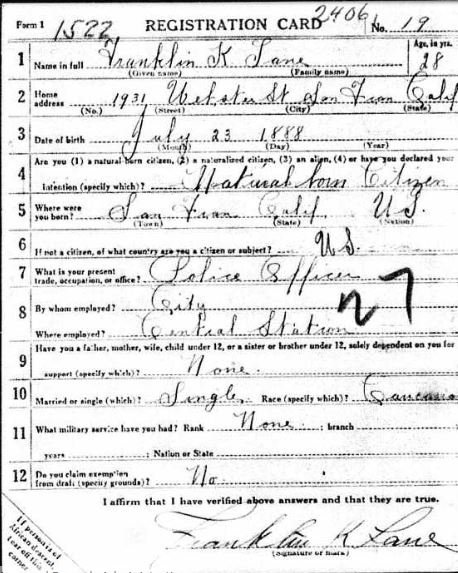 Form 1 1522 REGISTRATION CARD 2406 No. 19
1 Name in full Franklin K Lane Age, in yrs. 28
(Given name) (Family name)
2 Home address 1931 Webster St San Fran Calif
(No.) (Street) (City) (State)
3 Date of birth July 23 1888
(Month) (Day) (Year)
Are you (1) a natural-born citizen, (2) a naturalized citizen, (3) an alien, (4) or have you declared your
4 intention (specify which)? Natural born Citizen
5 Where were you born? San Fran Calif U.S.
(Town) (State) (Nation)
6 If not a citizen, of what country are you a citizen or subject? U.S.
7 What is your present trade, occupation, or office? Police Officer
8 By whom employed? City
27
Where employed? Central Station
9 Have you a father, mother, wife, child under 12, or a sister or brother under 12, solely dependent on you for
support (specify which)? None.
10 Married or single (which)? Single Race (specify which)?
11 What military service have you had? Rank None ; branch
years ; Nation or State
12 Do you claim exemption from draft (specify grounds)? No.
I affirm that I have verified above answers and that they are true.
Franklin K Lane
(Signature or mark)
If person is
of African descent
tear off this
corner